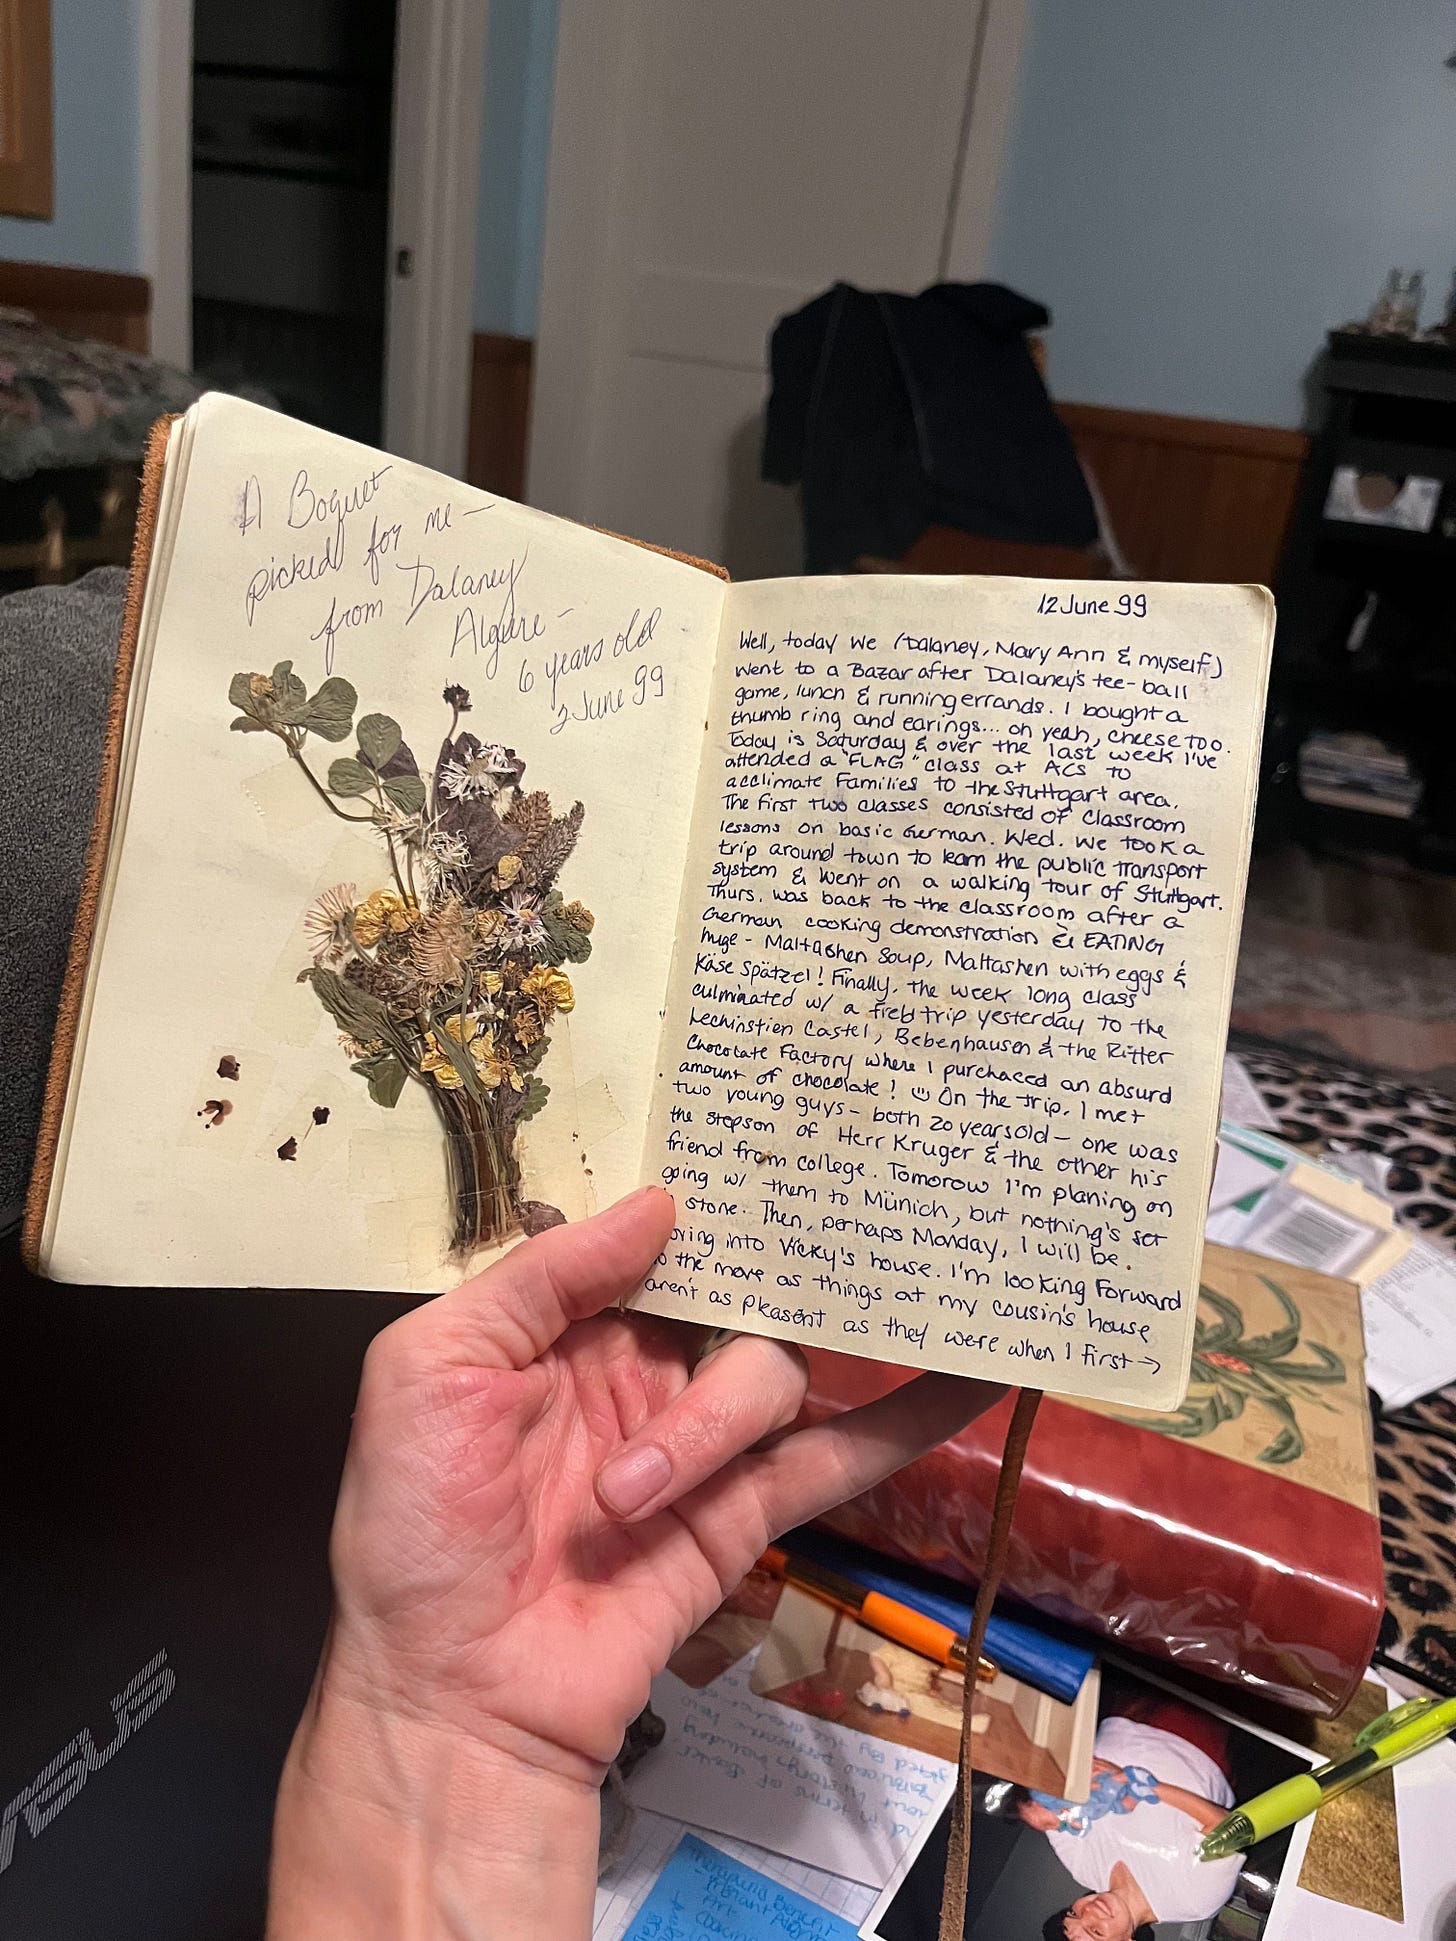 A Boquet
picked for me –
from Dalaney
Algere –
6 years old
2 June 99
12 June 99
Well, today we (Dalaney, Mary Ann & myself)
went to a Bazar after Dalaney's tee-ball
game, lunch & running errands. I bought a
thumb ring and earings... oh yeah, cheese too.
Today is Saturday & over the last week I've
attended a "FLAG" class at ACS to
acclimate Families to the Stuttgart area.
The first two classes consisted of classroom
lessons on basic German. Wed. we took a
trip around town to learn the public transport
system & went on a walking tour of Stuttgart.
Thurs. was back to the classroom after a
German cooking demonstration & EATING
huge - Maltashen Soup, Maltashen with eggs &
Käse Spätzel! Finally, the week long class
culminated w/ a field trip yesterday to the
Lechinstien Castel, Bebenhausen & the Ritter
Chocolate Factory where I purchaced an absurd
amount of chocolate! On the trip, I met
two young guys - both 20 years old - one was
the stepson of Herr Kruger & the other his
friend from college. Tomorow I'm planing on
going w/ them to Münich, but nothing's set
stone. Then, perhaps Monday, I will be
into Vicky's house. I'm looking Forward
the move as things at my cousin's house
aren't as pleasent as they were when I first →
ASUS
Therapeutic Benefit
Art